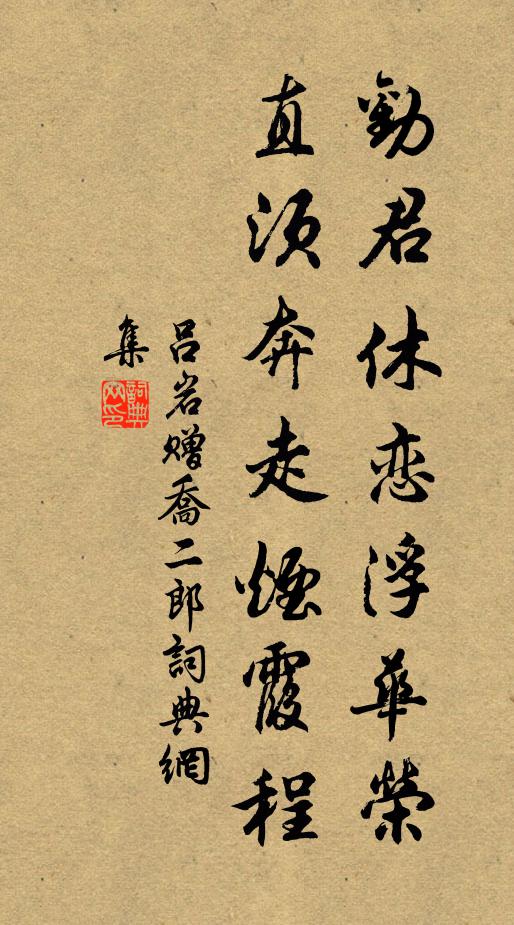 勸君休恋浮華榮
直須奔走煙霞程
吕岩贈喬二郎詞典網
集
詞典
网印